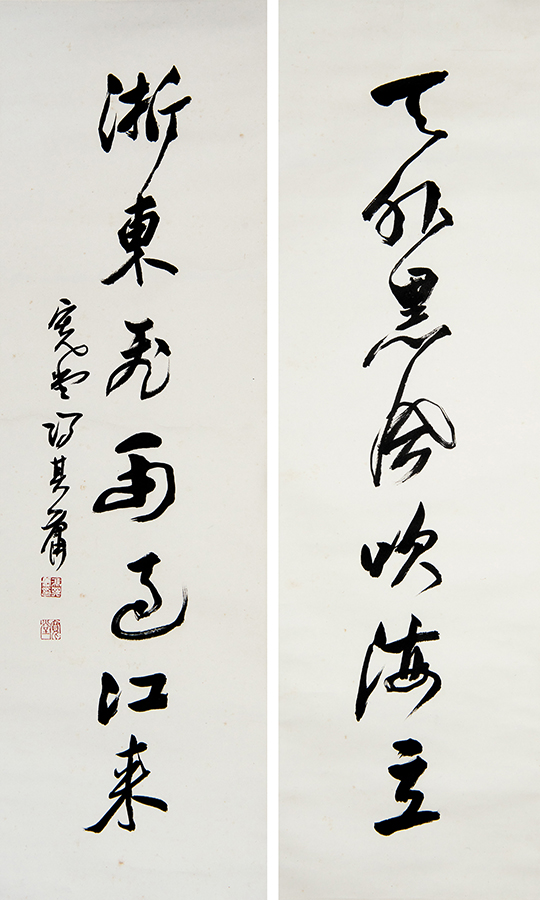 天外黑風吹海立
浙東飛雨過江来
寬堂馮其庸